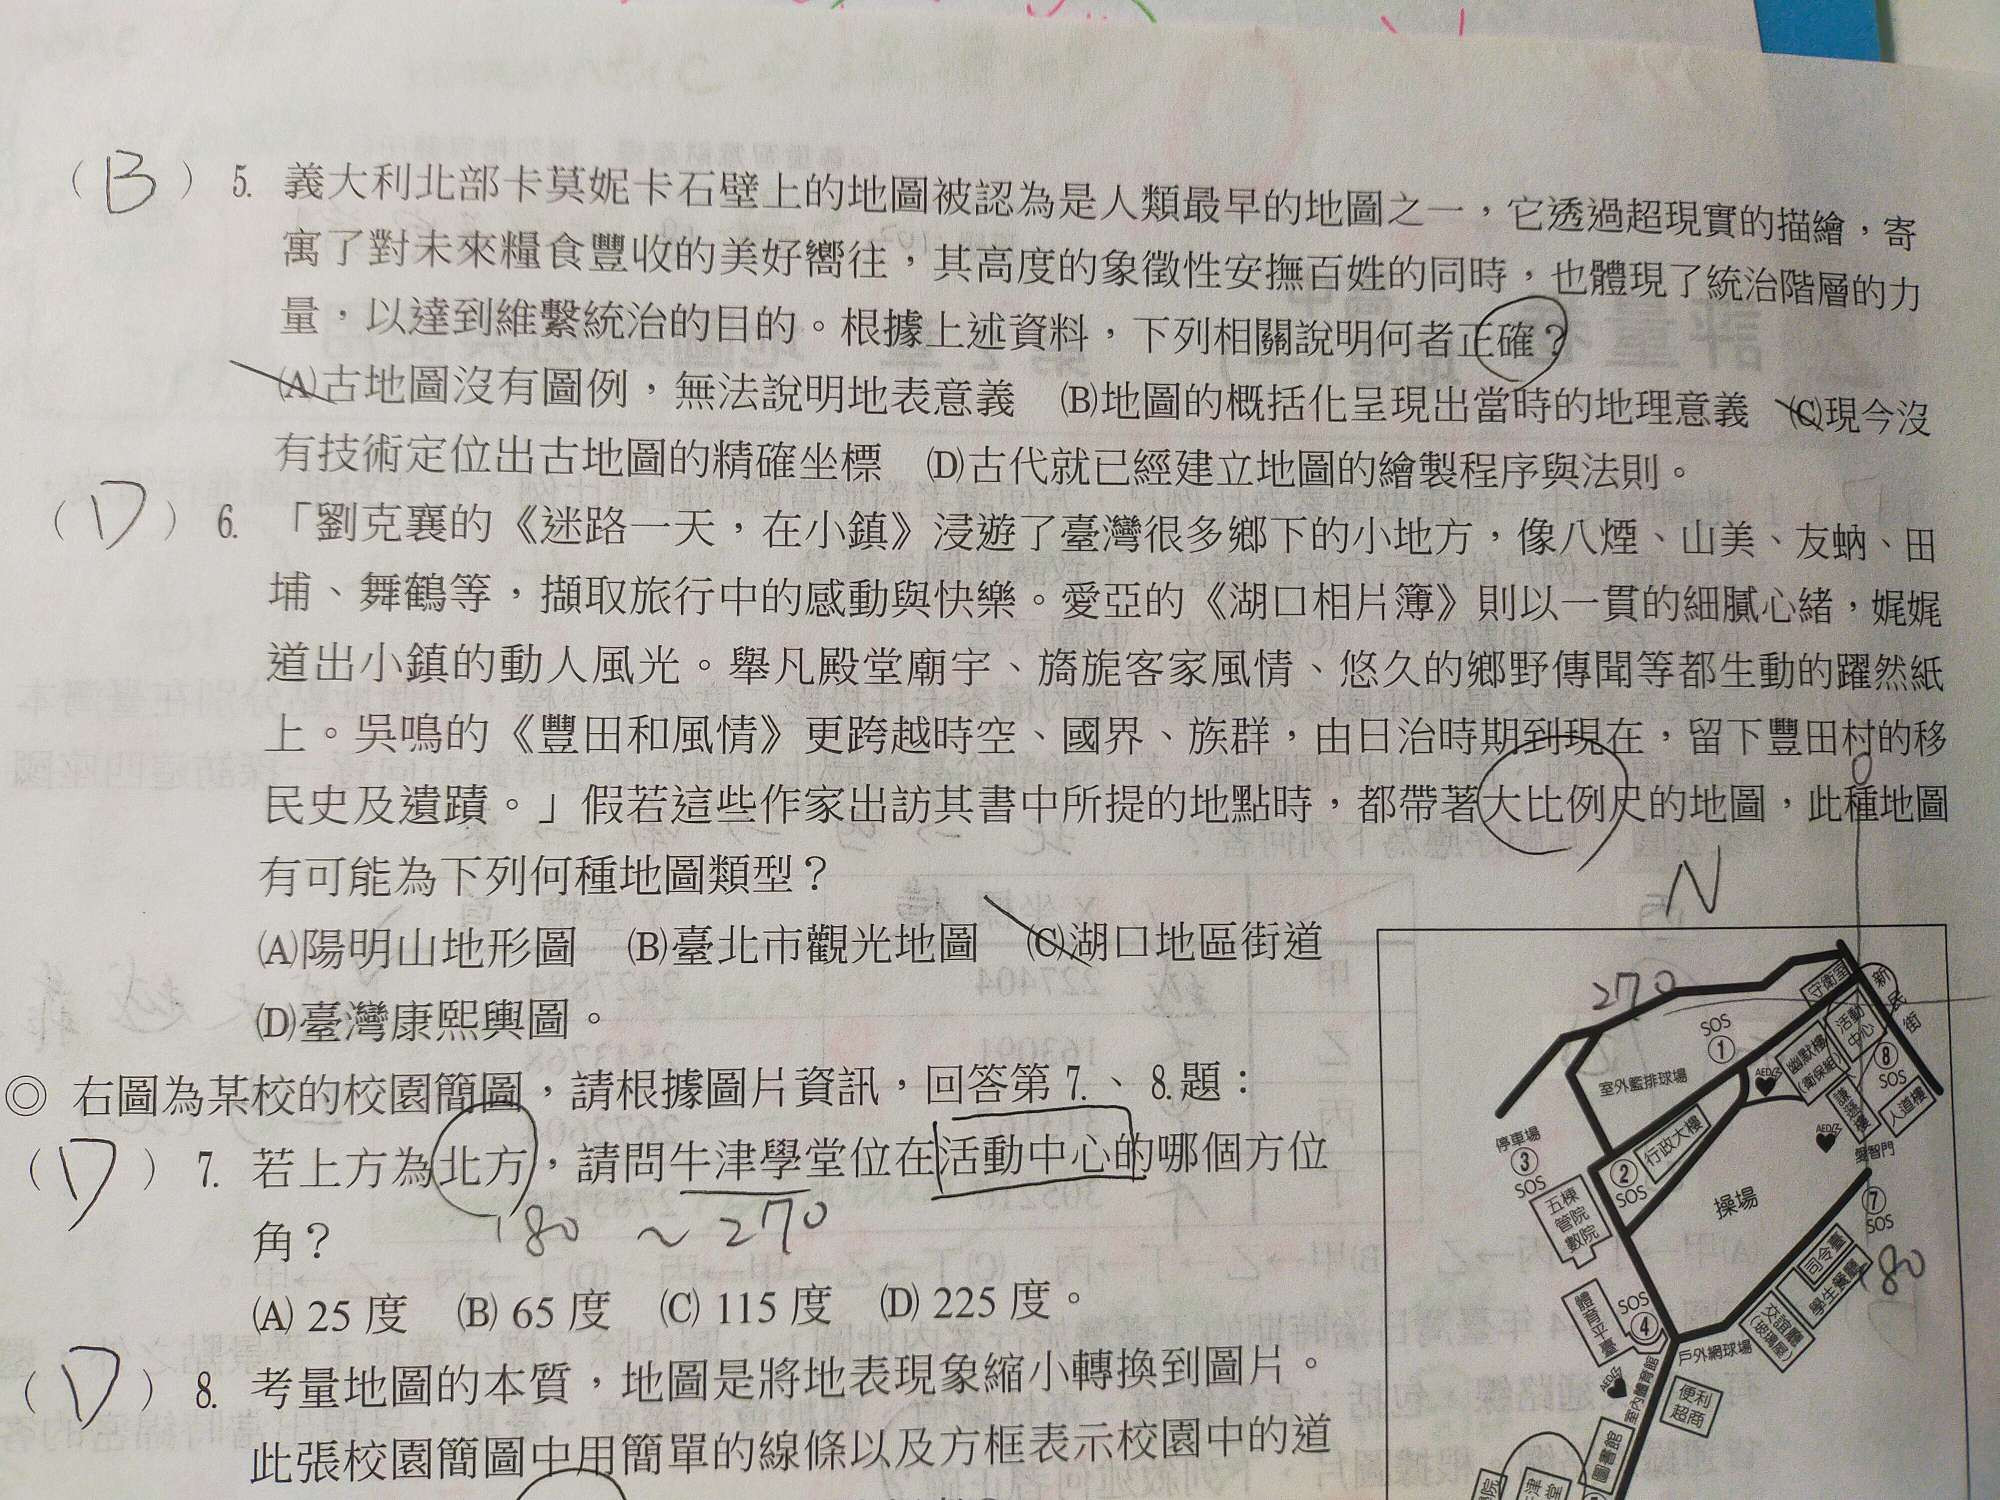 (B) 5. 義大利北部卡莫妮卡石壁上的地圖被認為是人類最早的地圖之一，它透過超現實的描繪，寄
寓了對未來糧食豐收的美好嚮往，其高度的象徵性安撫百姓的同時，也體現了統治階層的力
量，以達到維繫統治的目的。根據上述資料，下列相關說明何者正確？
(A)古地圖沒有圖例，無法說明地表意義 (B)地圖的概括化呈現出當時的地理意義 (C)現今沒
有技術定位出古地圖的精確坐標 (D)古代就已經建立地圖的繪製程序與法則。
(D) 6. 「劉克襄的《迷路一天，在小鎮》浸遊了臺灣很多鄉下的小地方，像八煙、山美、友蚋、田
埔、舞鶴等，擷取旅行中的感動與快樂。愛亞的《湖口相片簿》則以一貫的細膩心緒，娓娓
道出小鎮的動人風光。舉凡殿堂廟宇、旖旎客家風情、悠久的鄉野傳聞等都生動的躍然紙
上。吳鳴的《豐田和風情》更跨越時空、國界、族群，由日治時期到現在，留下豐田村的移
民史及遺蹟。」假若這些作家出訪其書中所提的地點時，都帶著大比例尺的地圖，此種地圖
有可能為下列何種地圖類型？
(A)陽明山地形圖 (B)臺北市觀光地圖 (C)湖口地區街道
(D)臺灣康熙輿圖。
◎ 右圖為某校的校園簡圖，請根據圖片資訊，回答第 7.、8.題：
(D) 7. 若上方為北方，請問牛津學堂位在活動中心的哪個方位
角？
180 ~ 270
(A) 25 度 (B) 65 度 (C) 115 度 (D) 225 度。
(D) 8. 考量地圖的本質，地圖是將地表現象縮小轉換到圖片。
此張校園簡圖中用簡單的線條以及方框表示校園中的道
0
N
270
180
守衛室
新民街
活動中心
SOS
①
幽默樓
(衛保組)
⑧
SOS
AED
謙遜樓
人道樓
室外籃排球場
AED
愛智門
停車場
③
SOS
行政大樓
②
SOS
操場
⑦
SOS
五棟
管院
數院
司令臺
學生餐廳
體育平臺
SOS
④
交誼廳
(玻璃屋)
戶外網球場
AED
室內體育館
便利
超商
圖書館